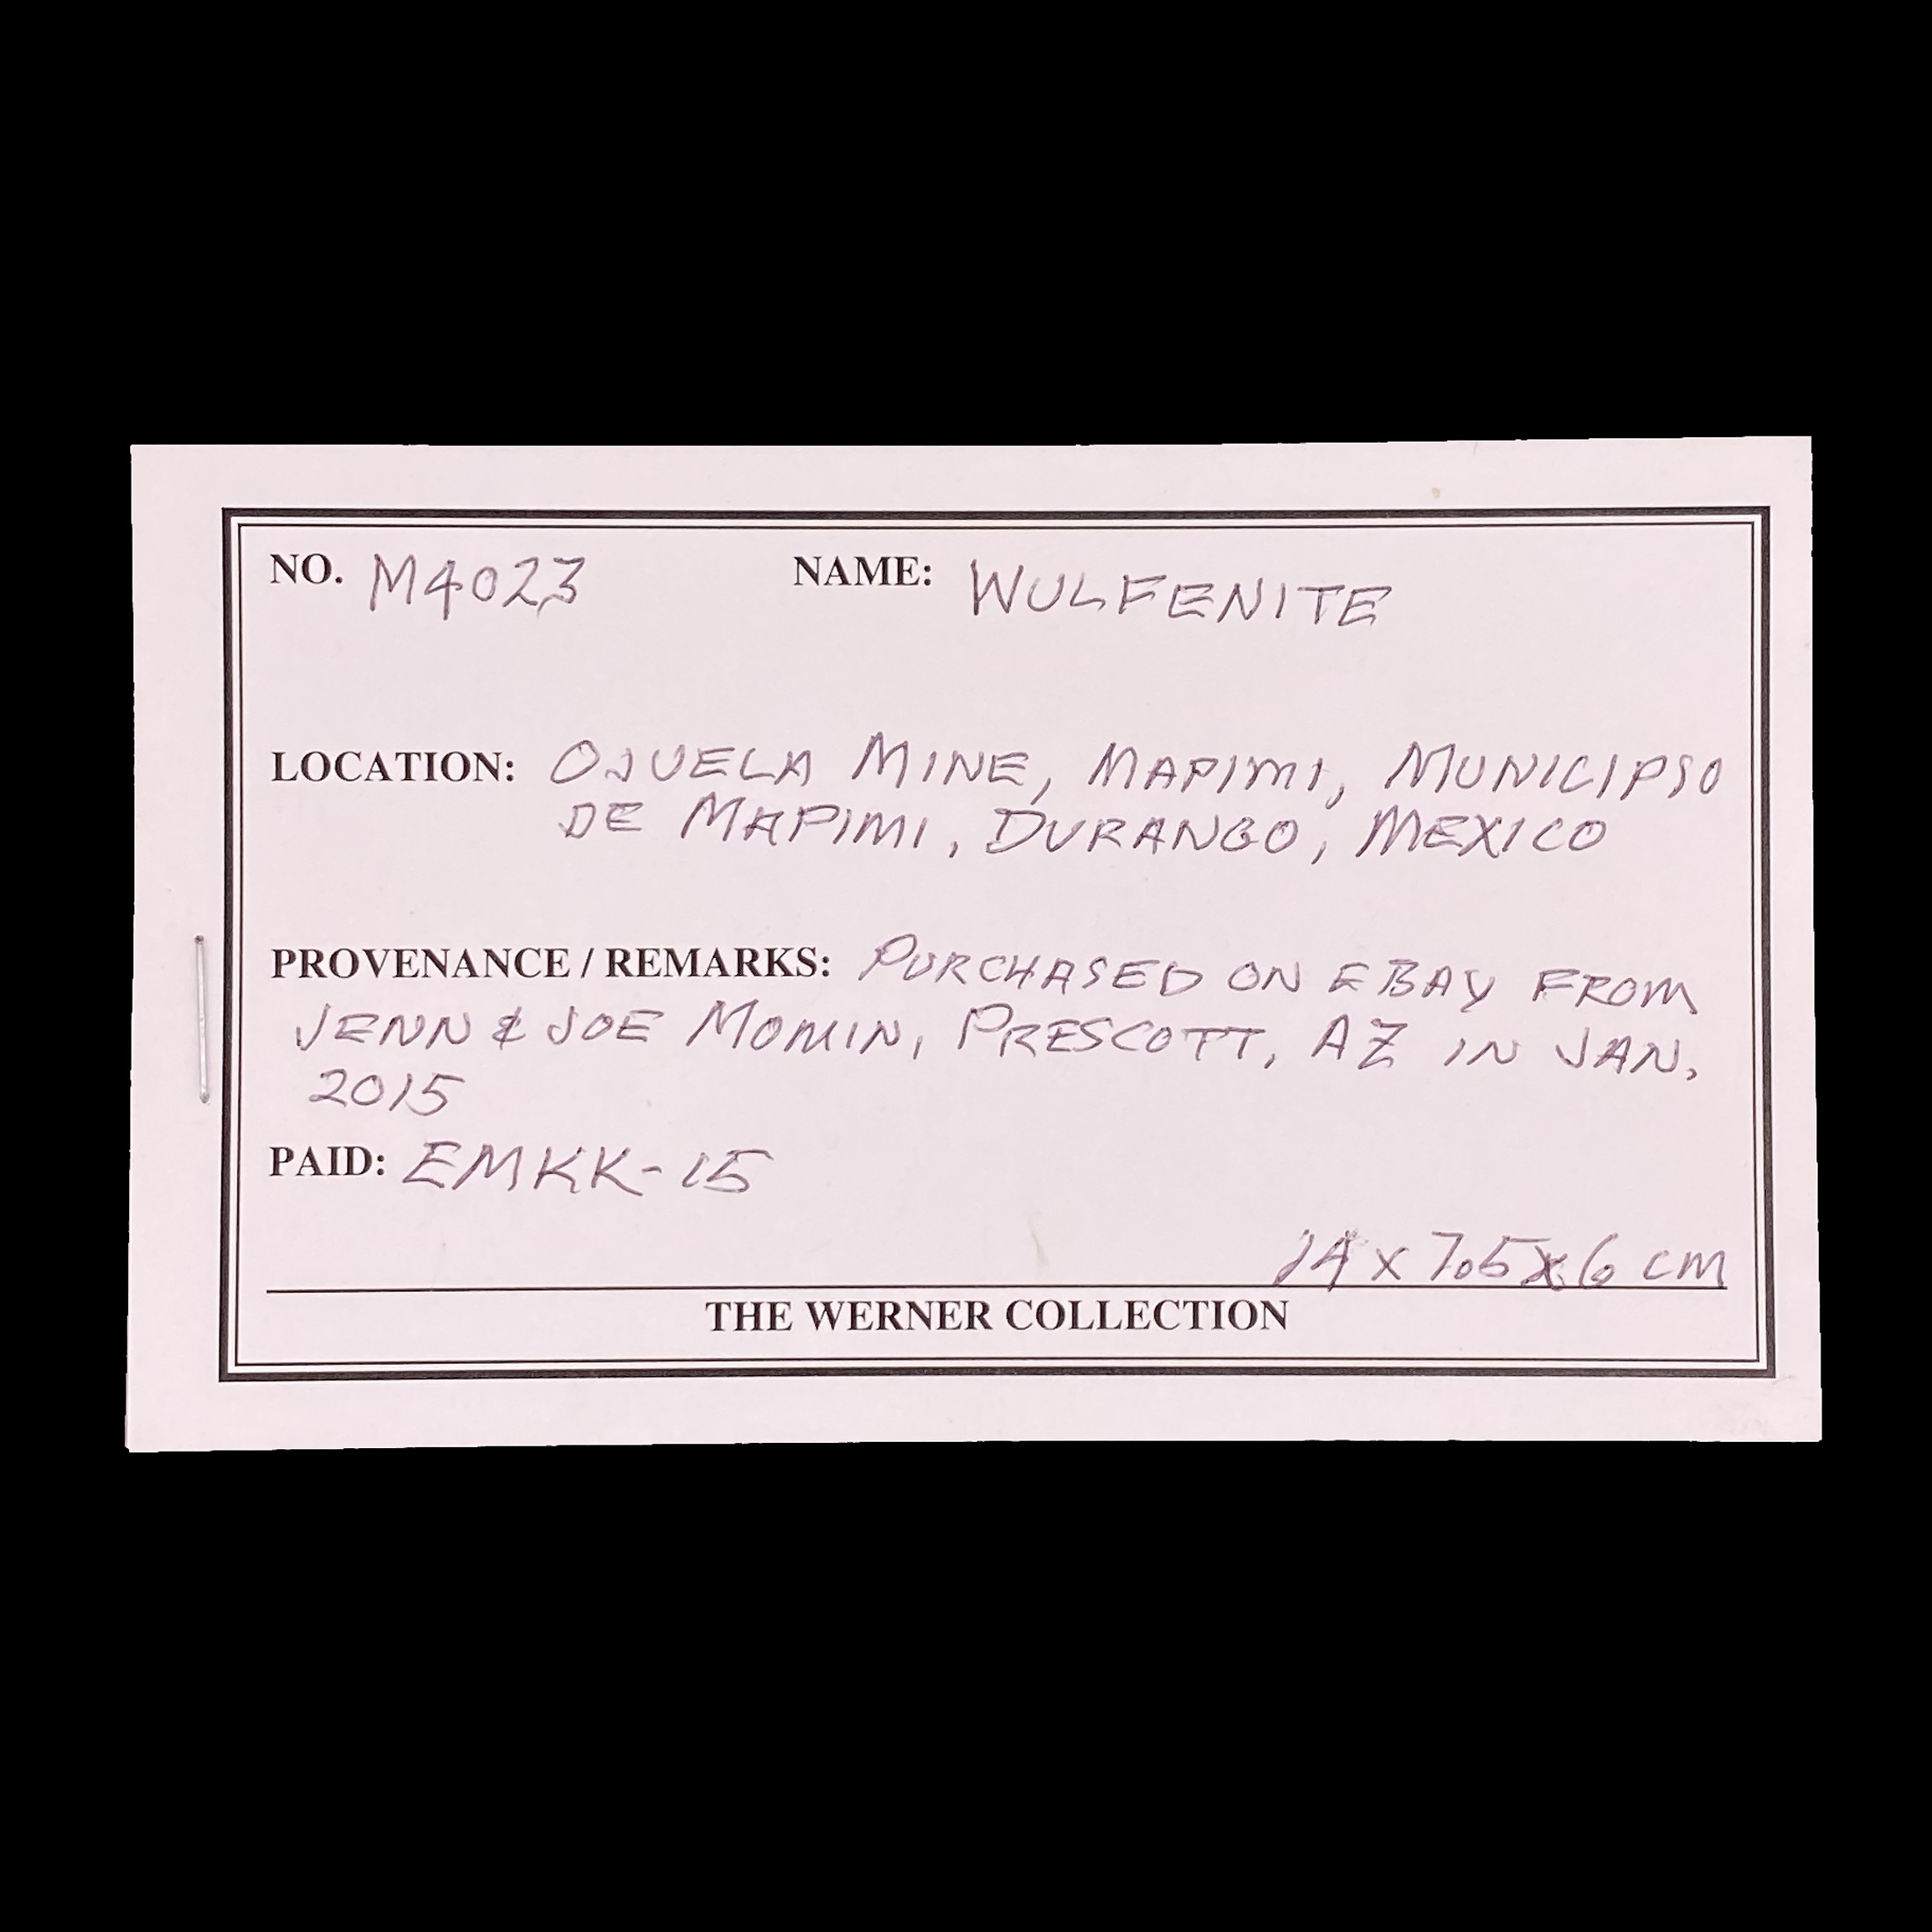 NO. M4023 NAME: WULFENITE
LOCATION: OJUELA MINE, MAPIMI, MUNICIPIO
DE MAPIMI, DURANGO, MEXICO
PROVENANCE / REMARKS: PURCHASED ON EBAY FROM
JENN & JOE MOMIN, PRESCOTT, AZ IN JAN.
2015
PAID: EMKK-15
14 x 7.5 x 6 cm
THE WERNER COLLECTION